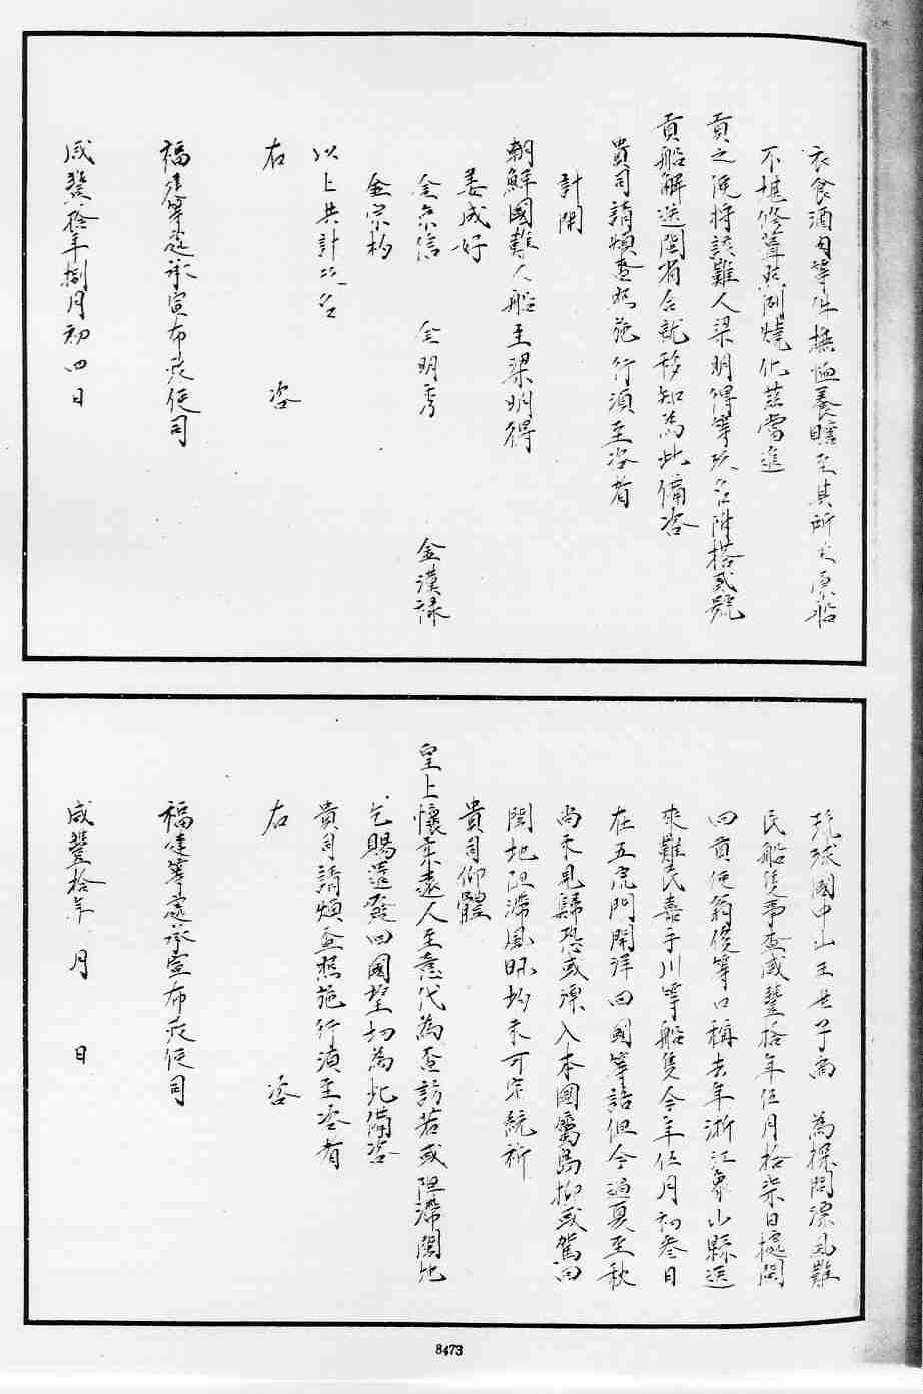 衣食酒肉等件撫恤養贍至其所坐原船
不堪修葺照例燒化茲當進
貢之便將該難人梁明得等玖名附搭貳號
貢船解送閩省合就移知為此備咨
貴司請煩查照施行須至咨者
計開
朝鮮國難人船主梁明得
姜成好
金宗信 金明秀 金漢祿
金宗杓
以上共計六名
右 咨
福建等處承宣布政使司
咸豐拾年捌月初四日
琉球國中山王世子尚 為探問漂風難
民船隻事查咸豐拾年伍月拾柒日據閩
回貢使翁俊等口稱去年浙江象山縣送
來難民嘉手川等船隻今年伍月初叁日
在五虎門開洋回國等語但今過夏至秋
尚未見歸恐或漂入本國屬島抑或駕回
閩地阻滯風時均未可定統祈
貴司仰體
皇上懷柔遠人至意代為查訪若或阻滯閩地
乞賜還發回國望切為此備咨
貴司請煩查照施行須至咨者
右 咨
福建等處承宣布政使司
咸豐拾年 月 日
8473